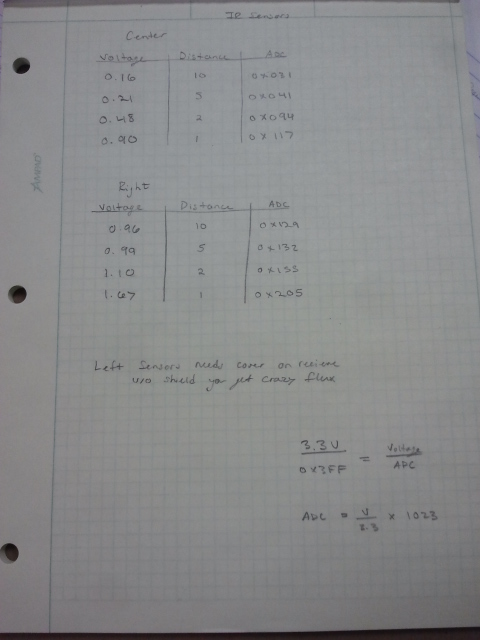 IR Sensors
Center
Voltage Distance ADC
0.16 10 0x031
0.21 5 0x041
0.48 2 0x094
0.90 1 0x117
Right
Voltage Distance ADC
0.96 10 0x129
0.99 5 0x132
1.10 2 0x155
1.67 1 0x205
Left Sensors needs cover on recieve
w/o shield you get crazy
3.3V / 0x3FF = Voltage / ADC
ADC = V / 3.3 x 1023